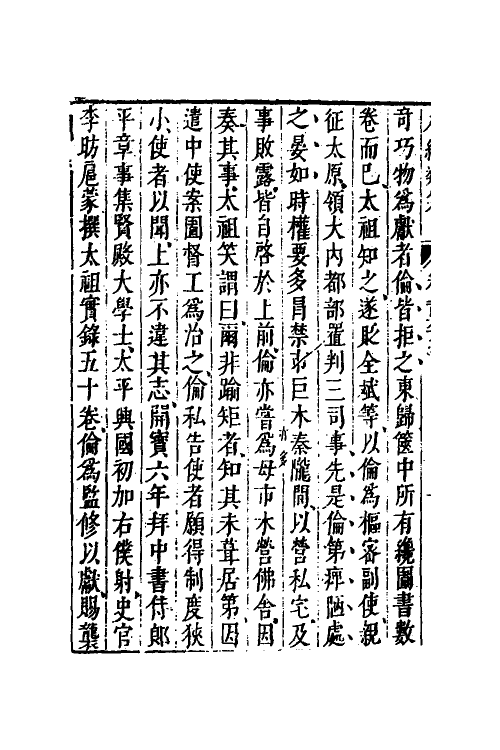 奇巧物為獻者倫皆拒之東歸篋中所有纔圖書數
卷而已太祖知之遂貶全斌等以倫為樞密副使親
征太原領大內都部置判三司事先是倫第痺陋處
之晏如時權要多冒禁市巨木秦隴間以營私宅及
事敗露皆自啓於上前倫亦嘗為母市木營佛舍因
奏其事太祖笑謂曰爾非踰矩者知其未葺居第因
遣中使案圖督工為治之倫私告使者願得制度狹
小使者以聞上亦不違其志開寶六年拜中書侍郎
平章事集賢殿大學士太平興國初加右僕射史官
李昉扈蒙撰太祖實錄五十卷倫為監修以獻賜襲